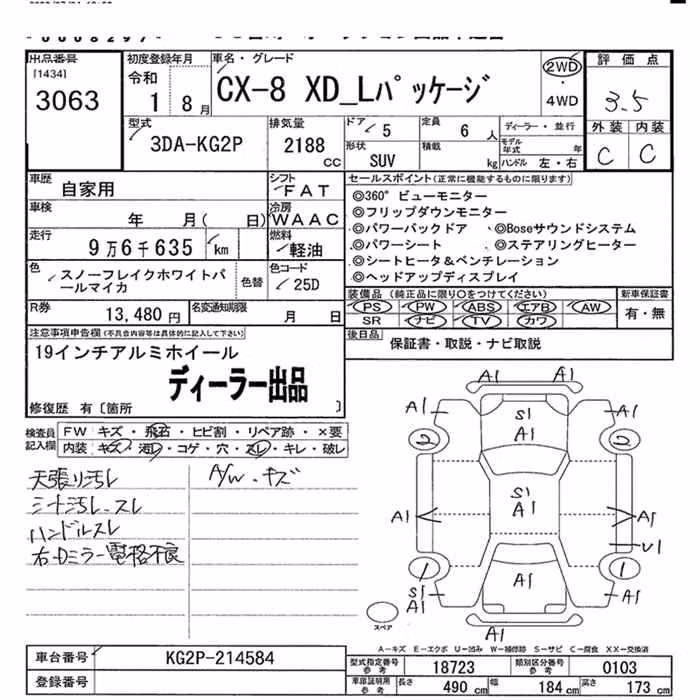 出品番号
[1434]
3063
初度登録年月
令和
1 8月
車名・グレード
CX-8 XD_Lパッケージ
2WD
・
4WD
評価点
3.5
外装 内装
C C
型式
3DA-KG2P
排気量
2188
CC
ドア
5
定員
6 人
ディーラー・並行
形状
SUV
積載
kg
モデル年式 年
ハンドル 左・右
車歴
自家用
シフト
FAT
車検
年 月( 日)
冷房
WAAC
走行
9万6千635 km
燃料
軽油
色
スノーフレイクホワイトパ
ールマイカ
色替
色コード
25D
R券
13,480 円
名変通知期限
月 日
セールスポイント(正常に機能するものに限ります)
◎360°ビューモニター
◎フリップダウンモニター
◎パワーバックドア ◎Boseサウンドシステム
◎パワーシート ◎ステアリングヒーター
◎シートヒータ&ベンチレーション
◎ヘッドアップディスプレイ
装備品(純正品に限り○をつけてください)
PS PW ABS エアB AW
SR ナビ TV カワ
新車保証書
有・無
後日品
保証書・取説・ナビ取説
注意事項申告欄(不具合内容等は具体的に記入して下さい)
19インチアルミホイール
ディーラー出品
修復歴 有〔箇所 〕
検査員
記入欄
FW キズ・飛石・ヒビ割・リペア跡・×要
内装・キズ・汚レ・コゲ・穴・スレ・キレ・破レ
天張り汚レ
シート汚レ、スレ
ハンドルスレ
右ドミラー電格不良
A/W・キズ
A1 A1
A1 S1 A1 A1
2 2
A1 S1 A1 A1
U1
1 1
S1 A1 A1 A1
A1
スペア
A-キズ E-エクボ U-凹み W-補修跡 S-サビ C-腐食 XX-交換済
車台番号
KG2P-214584
登録番号
型式指定番号
参考
18723
類別区分番号
参考
0103
車庫証明用
参考
長さ 490 cm
幅 184 cm
高さ 173 cm